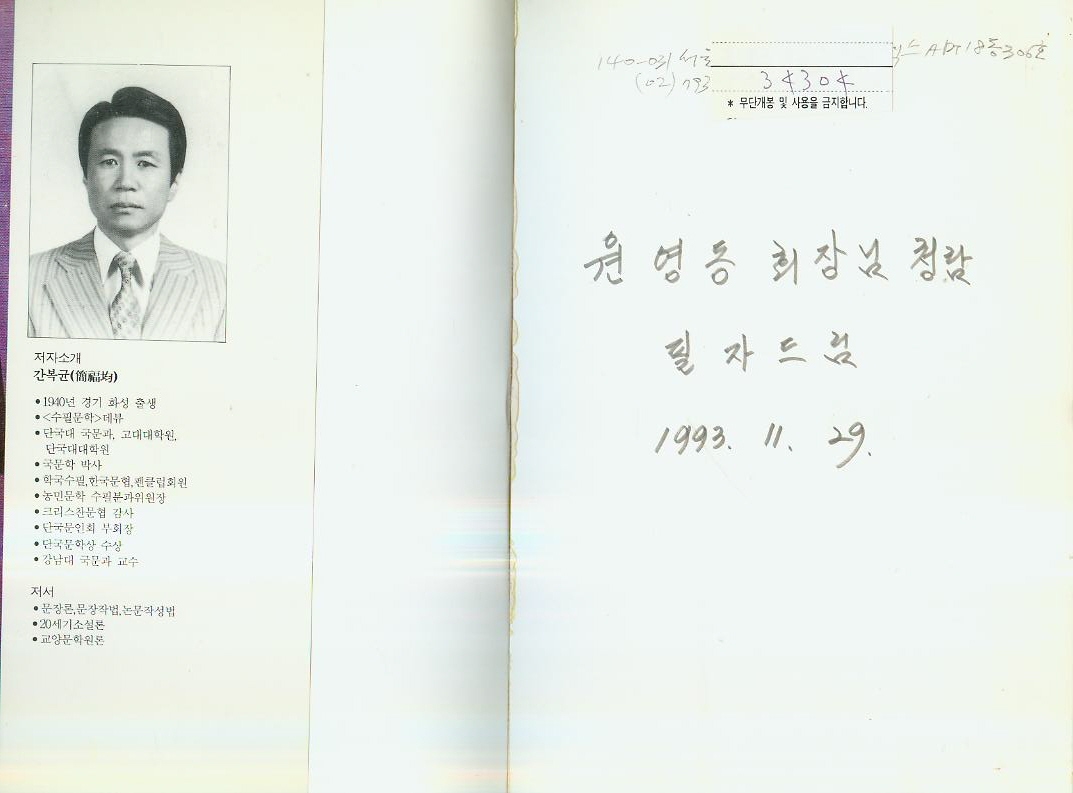 저자소개
간복균(簡福均)
•1940년 경기 화성 출생
•<수필문학>데뷰
•단국대 국문과, 고대대학원,
단국대대학원
•국문학 박사
•한국수필,한국문협,펜클럽회원
•농민문학 수필분과위원장
•크리스찬문협 감사
•단국문인회 부회장
•단국문학상 수상
•강남대 국문과 교수
저서
•문장론,문장작법,논문작성법
•20세기소설론
•교양문학원론
140-031 서
APT 18동 306호
(02) 793
34304
* 무단개봉 및 사용을 금지합니다.
원영동 회장님 청람
필자드림
1993. 11. 29.